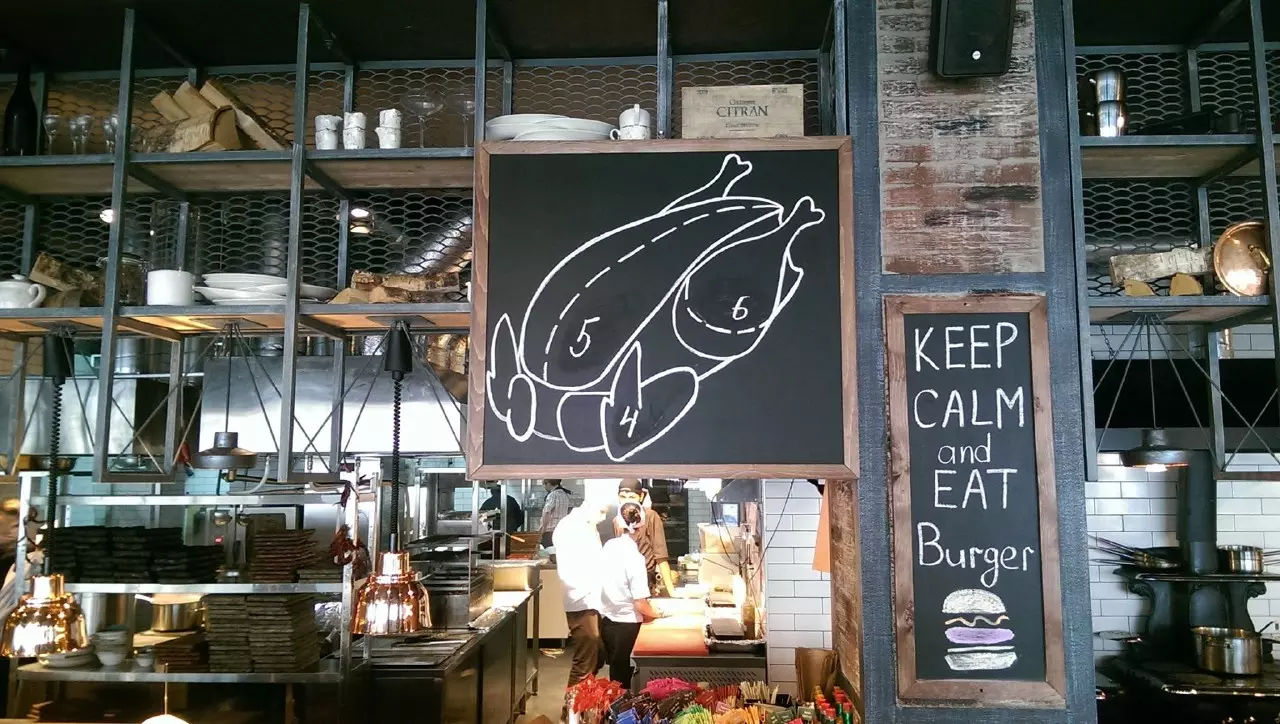 CITRAN
5
6
4
KEEP
CALM
and
EAT
Burger